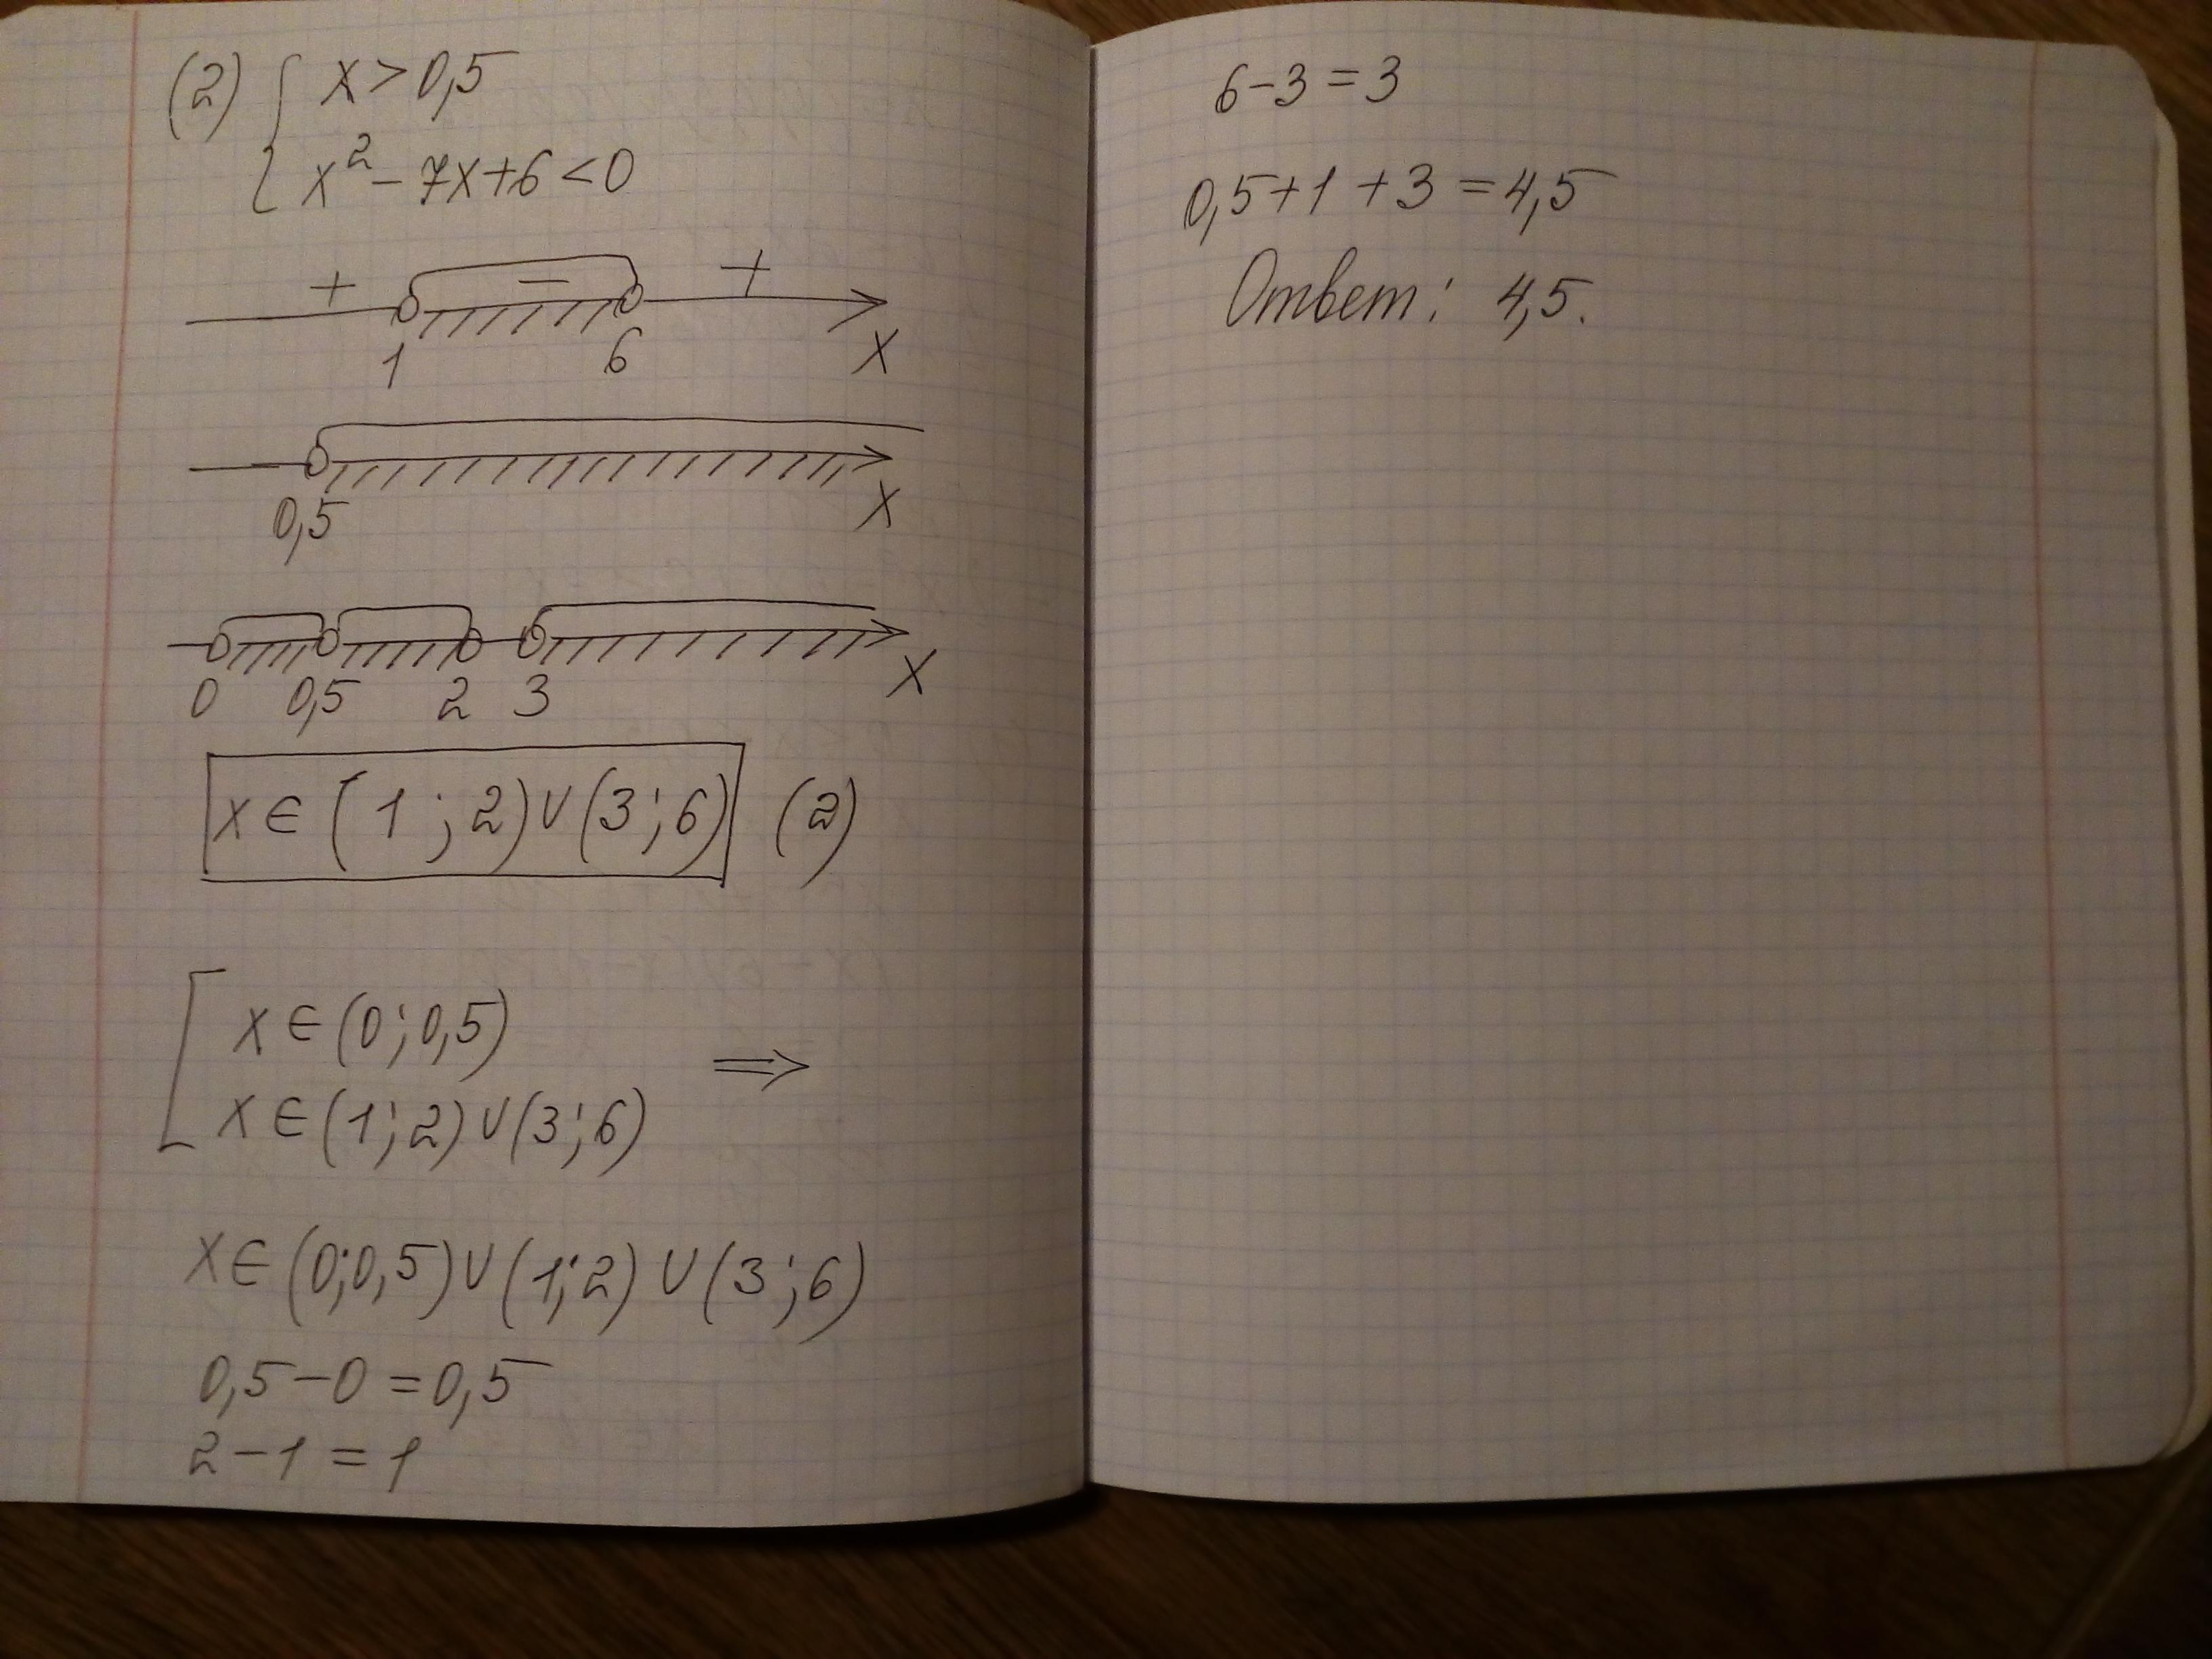 (2) { x > 0,5
x² - 7x + 6 < 0
+ - +
1 6 x
0,5 x
0 0,5 2 3 x
x ∈ (1 ; 2) ∪ (3 ; 6) (2)
[ x ∈ (0 ; 0,5)
x ∈ (1 ; 2) ∪ (3 ; 6) ⇒
x ∈ (0; 0,5) ∪ (1; 2) ∪ (3 ; 6)
0,5 - 0 = 0,5
2 - 1 = 1
6 - 3 = 3
0,5 + 1 + 3 = 4,5
Ответ: 4,5.